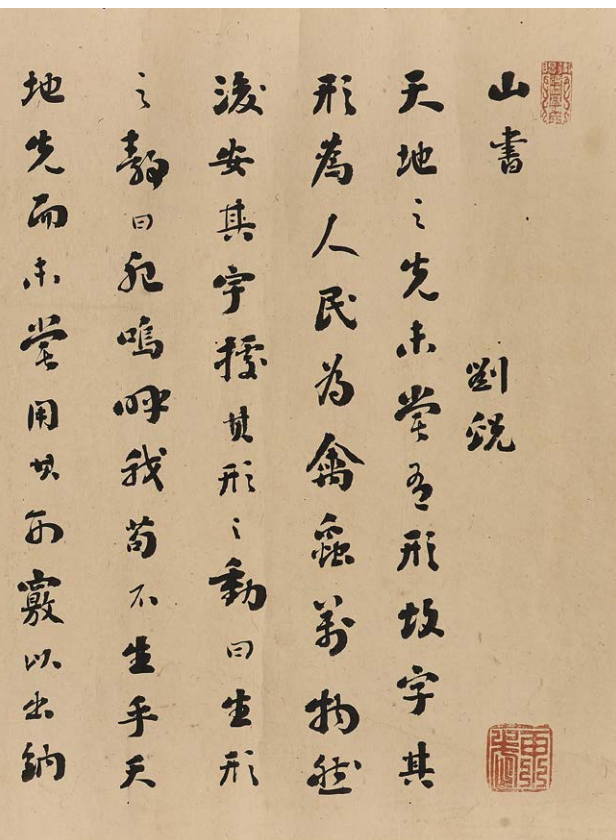 山書
劉蛻
天地之先未嘗有形故字其
形為人民為禽蟲萬物然
後安其字據其形之動曰生形
之靜曰死嗚呼我苟不生乎天
地先而未嘗用其竅以出納